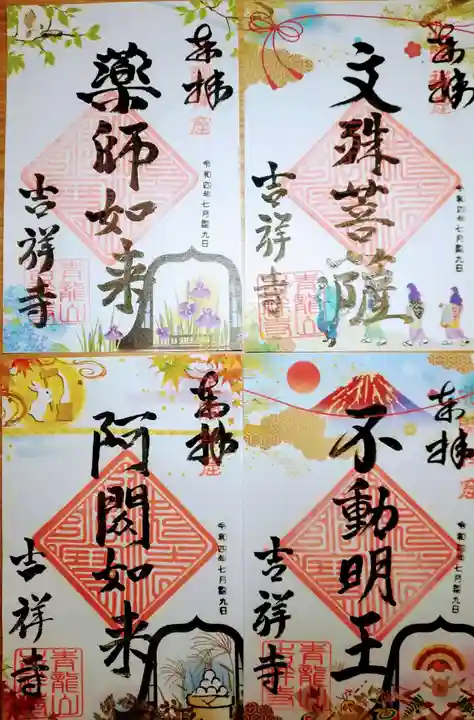 奉拝
薬師如来
令和四年七月第九日
吉祥寺
青龍山
奉拝
文殊菩薩
令和四年七月第九日
吉祥寺
青龍山
奉拝
阿閦如来
令和四年七月第九日
吉祥寺
青龍山
奉拝
不動明王
令和四年七月第九日
吉祥寺
青龍山